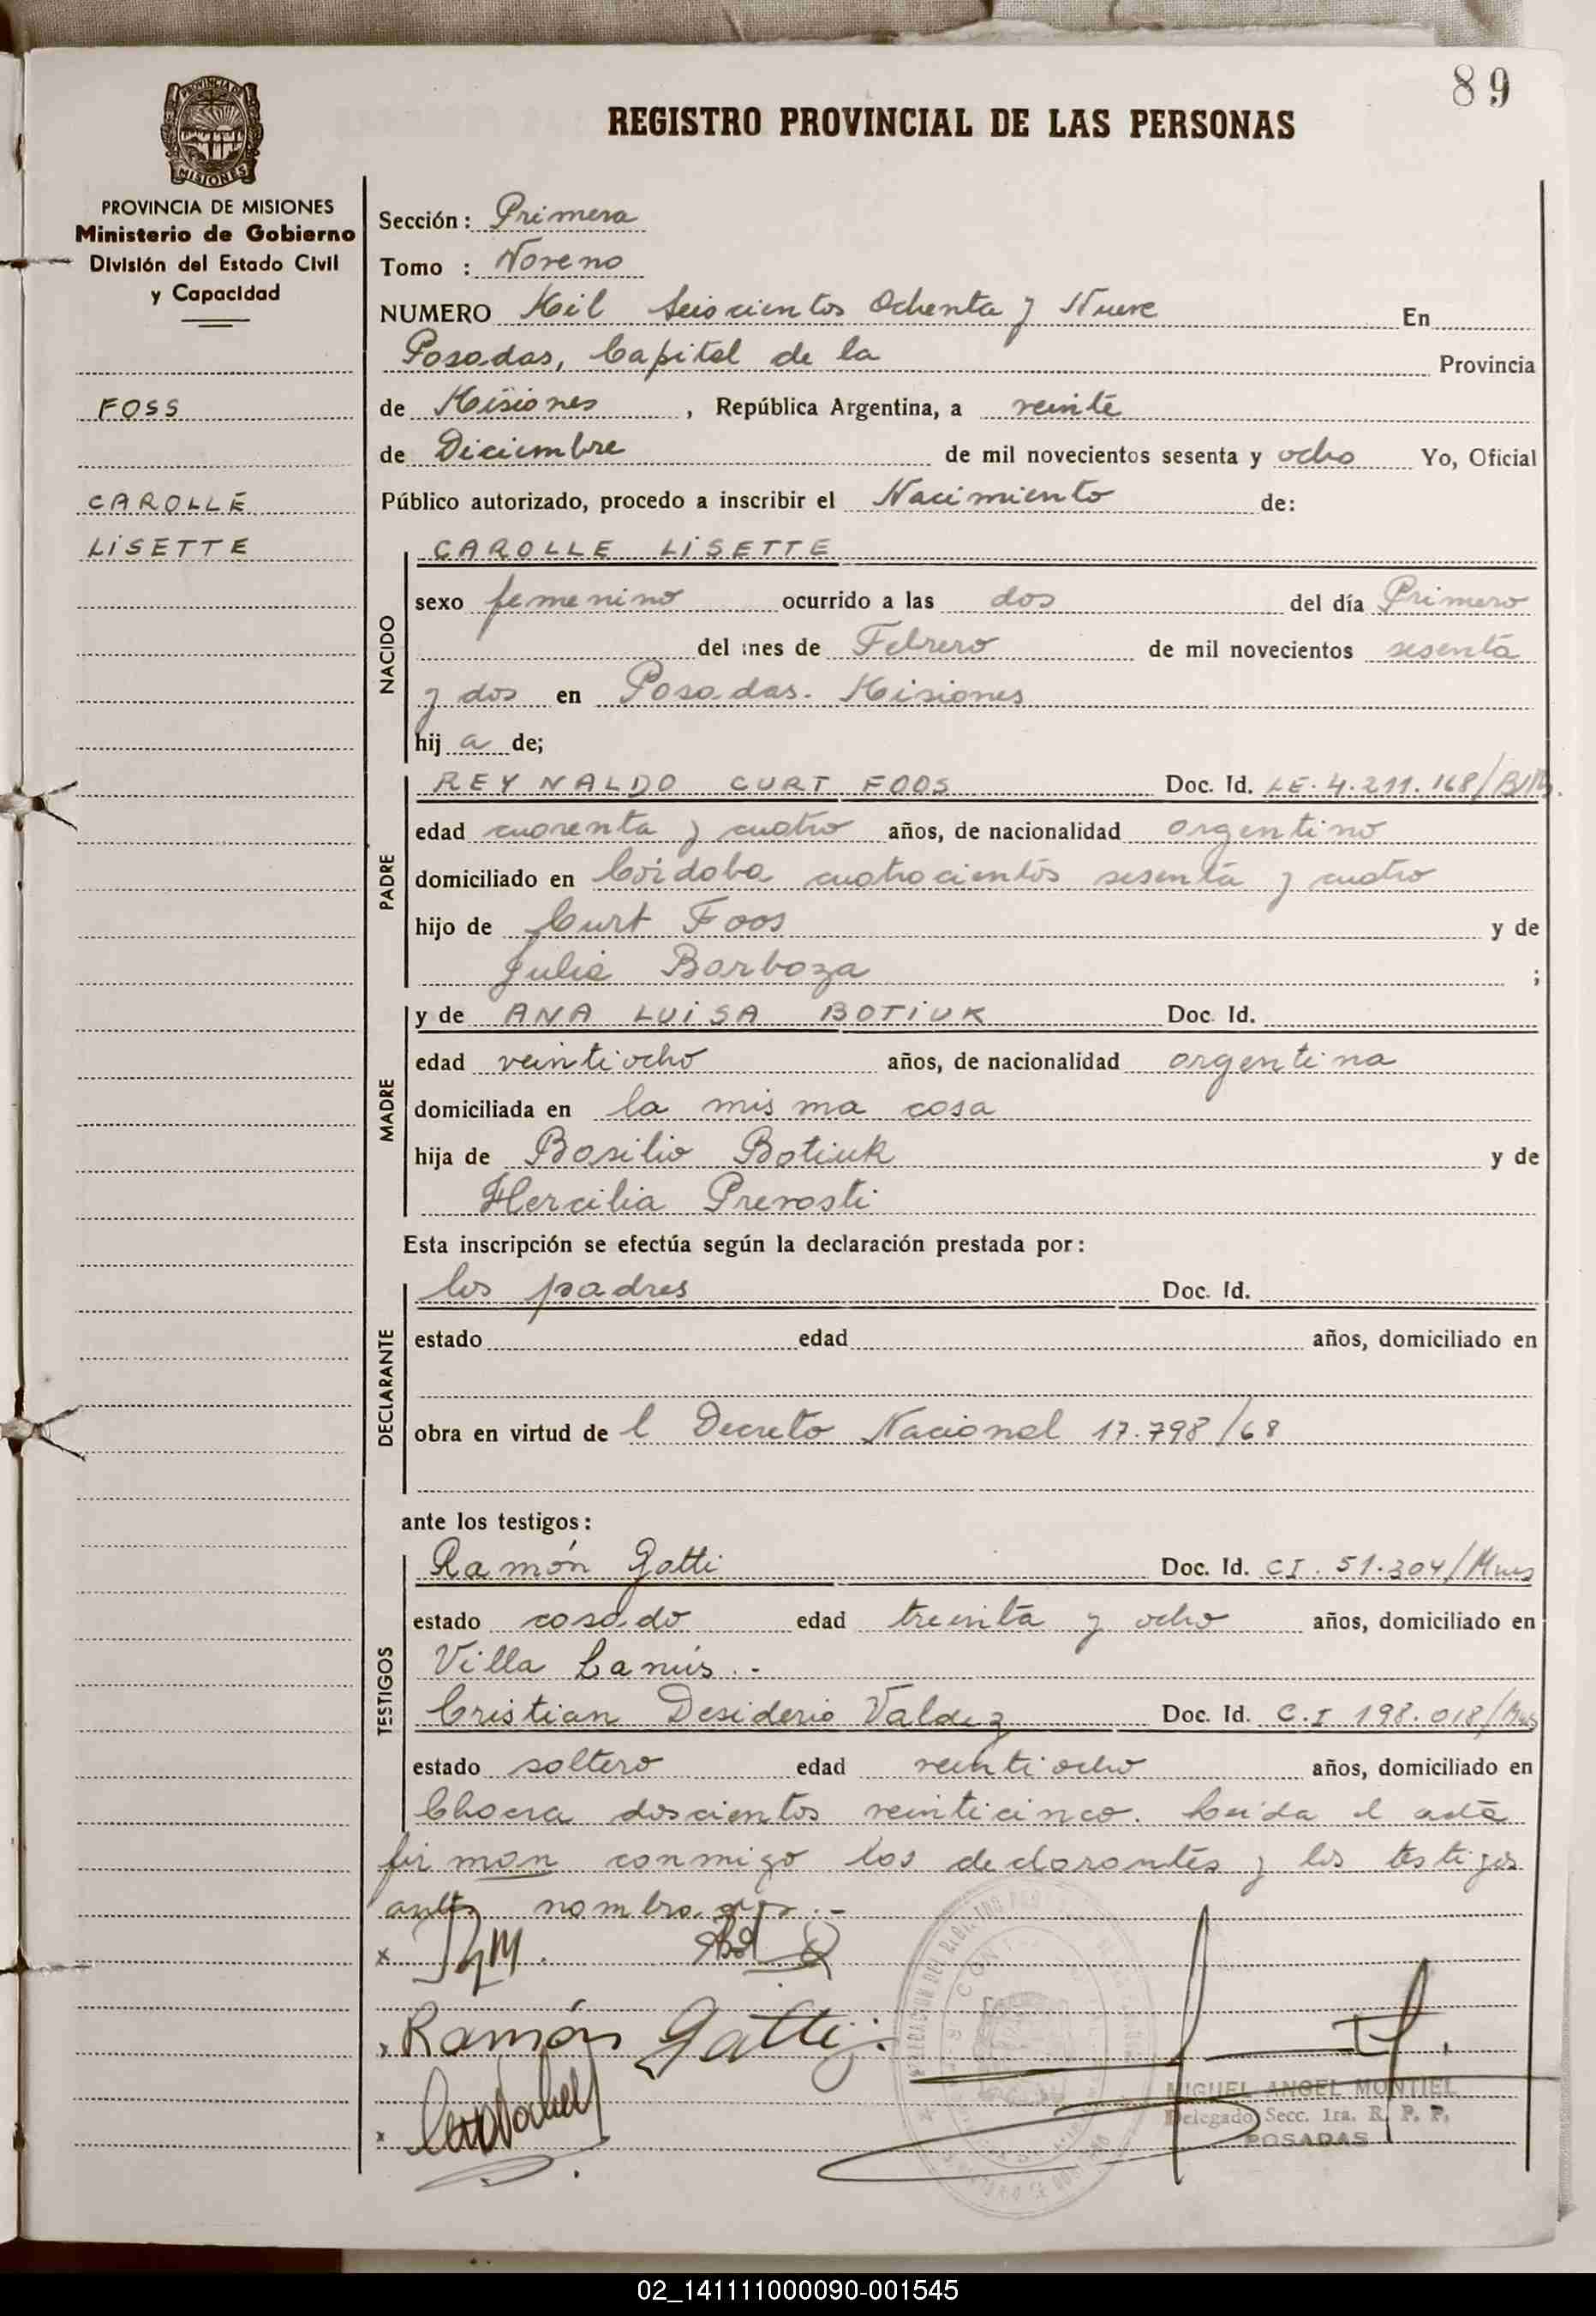 89
REGISTRO PROVINCIAL DE LAS PERSONAS
PROVINCIA DE MISIONES
Ministerio de Gobierno
División del Estado Civil
y Capacidad
FOSS
CAROLLE
LISETTE
Sección: Primera
Tomo : Noveno
NUMERO Mil Seiscientos Ochenta y Nueve En
Posadas, Capital de la Provincia
de Misiones, República Argentina, a veinte
de Diciembre de mil novecientos sesenta y ocho Yo, Oficial
Público autorizado, procedo a inscribir el Nacimiento de:
NACIDO
CAROLLE LISETTE
sexo femenino ocurrido a las dos del día Primero
del mes de Febrero de mil novecientos sesenta
y dos en Posadas. Misiones
hij a de;
PADRE
REYNALDO CURT FOOS Doc. Id. LE. 4.211.168/
edad cuarenta y cuatro años, de nacionalidad argentino
domiciliado en Córdoba cuatrocientos sesenta y cuatro
hijo de Curt Foos y de
Julia Barboza ;
MADRE
y de ANA LUISA BOTIUK Doc. Id.
edad veintiocho años, de nacionalidad argentina
domiciliada en la misma casa
hija de Basilio Botiuk y de
Hercilia Prevosti
Esta inscripción se efectúa según la declaración prestada por:
DECLARANTE
los padres Doc. Id.
estado edad años, domiciliado en
obra en virtud de l Decreto Nacional 17.798/68
ante los testigos:
TESTIGOS
Ramón Gatti Doc. Id. CI. 51.304/Mnes
estado casado edad treinta y ocho años, domiciliado en
Villa Lanús.-
Cristian Desiderio Valdez Doc. Id. C.I 198.018/Mnes
estado soltero edad veintiocho años, domiciliado en
doscientos veinticinco. Leída el acta
firman conmigo los declarantes y los testigos
antes nombrados.-
x
x Ramón Gatti
x
MIGUEL ANGEL MONTIEL
Delegado Secc. 1ra. R. P. P.
POSADAS
02_141111000090-001545